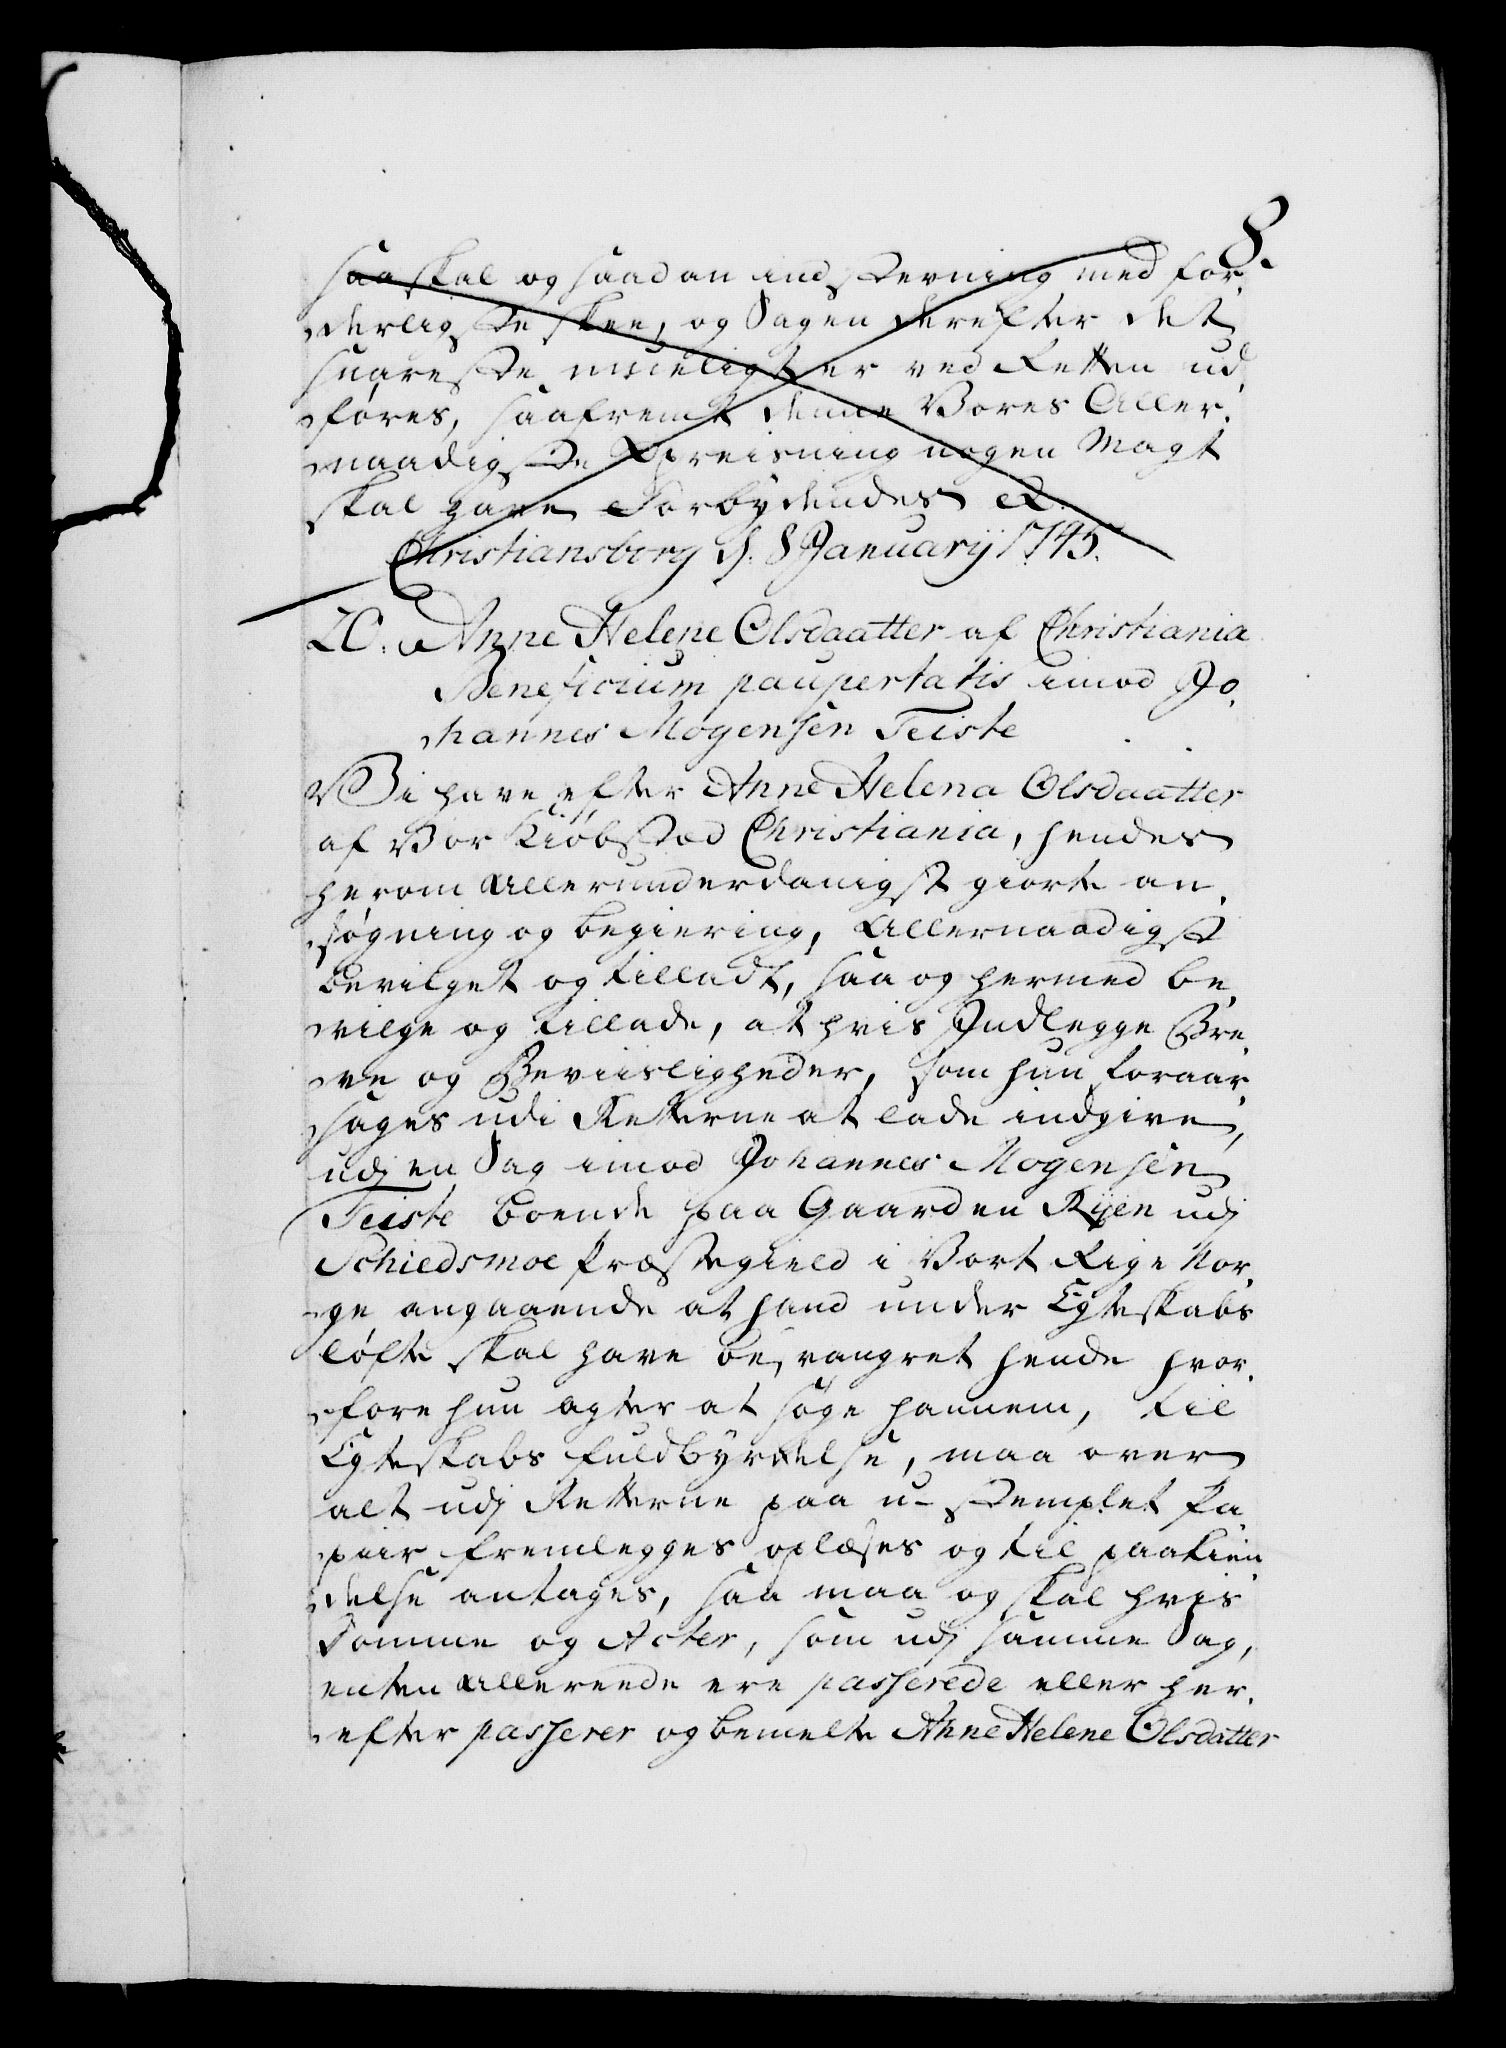 8.
saa skal og saadan indstevning med for,
derligste skee, og Sagen derefter det
snareste mueligt er ved Retten ud,
føres, saafremt denne Vores Aller,
naadigste Opreisning nogen Magt
skal have Forbydendes &.
Christiansborg d. 8 Januarij 1745.
20. Anne Helene Olsdaatter af Christiania
Beneficium paupertatis imod Jo,
hannes Mogensen Teiste
Vi have efter Anne Helena Olsdaatter
af Vor Kiøbsted Christiania, hendes
herom Allerunderdanigst giorte an,
søgning og begiering, Allernaadigst
bevilget og tilladt, saa og hermed be,
vilge og tillade, at hvis Indlegge Bre,
ve og Beviisligheder, som hun foraar,
sages udi Retterne at lade indgive,
udj en Sag imod Johannes Mogensen
Teiste boende paa Gaarden Rÿen udj
Schiedsmoe Præstegield i Vort Rige Nor,
ge angaaende at hand under Egteskabs
løfte skal have besvangret hende hvor,
fore hun agter at søge hannem, til
Egteskabs fuldbyrdelse, maa over
alt udj Retterne paa u-stemplet Pa,
piir fremlegges oplæses og til paakien,
delse antages, saa maa og skal hvis
Domme og Acter, som udj samme Sag,
enten allereede ere passerede eller her,
efter passerer og bemelte Anne Helene Olsdatter